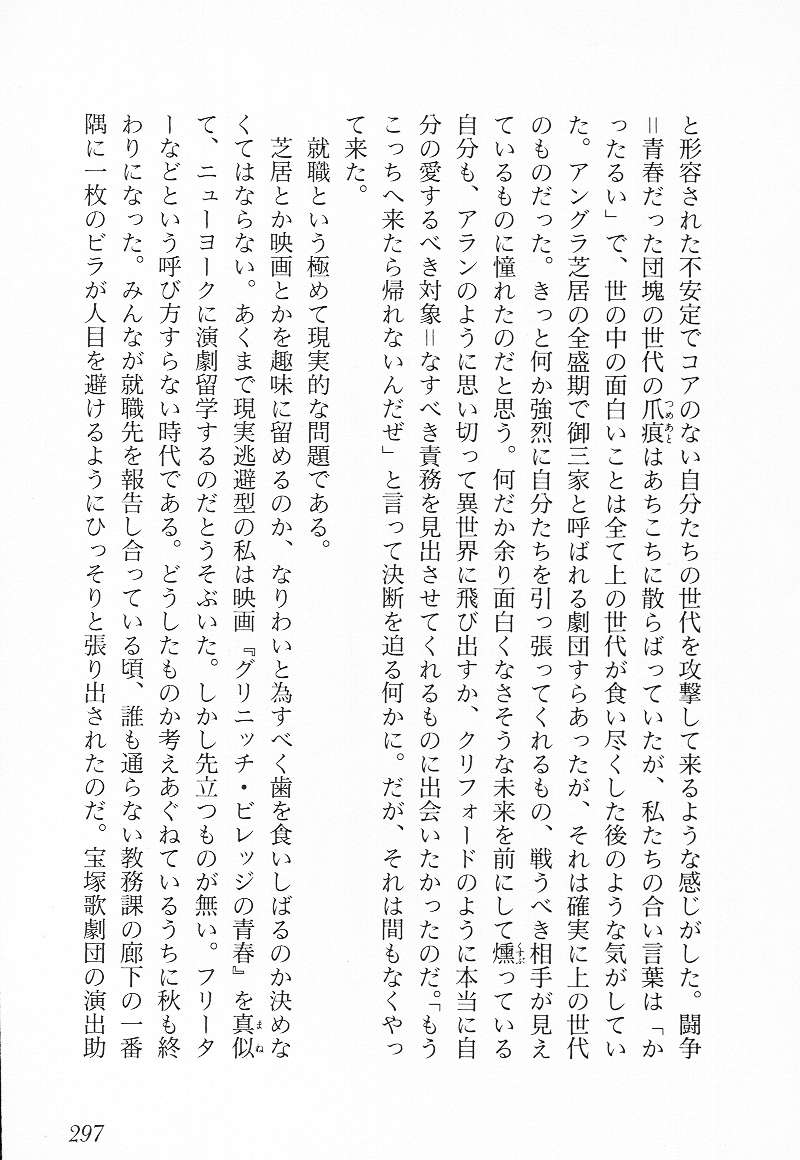 と形容された不安定でコアのない自分たちの世代を攻撃して来るような感じがした。闘争
＝青春だった団塊の世代の爪痕はあちこちに散らばっていたが、私たちの合い言葉は「か
ったるい」で、世の中の面白いことは全て上の世代が食い尽くした後のような気がしてい
た。アングラ芝居の全盛期で御三家と呼ばれる劇団すらあったが、それは確実に上の世代
のものだった。きっと何か強烈に自分たちを引っ張ってくれるもの、戦うべき相手が見え
ているものに憧れたのだと思う。何だか余り面白くなさそうな未来を前にして燻っている
自分も、アランのように思い切って異世界に飛び出すか、クリフォードのように本当に自
分の愛するべき対象＝なすべき責務を見出させてくれるものに出会いたかったのだ。「もう
こっちへ来たら帰れないんだぜ」と言って決断を迫る何かに。だが、それは間もなくやっ
て来た。
就職という極めて現実的な問題である。
芝居とか映画とかを趣味に留めるのか、なりわいと為すべく歯を食いしばるのか決めな
くてはならない。あくまで現実逃避型の私は映画『グリニッチ・ビレッジの青春』を真似
て、ニューヨークに演劇留学するのだとうそぶいた。しかし先立つものが無い。フリータ
ーなどという呼び方すらない時代である。どうしたものか考えあぐねているうちに秋も終
わりになった。みんなが就職先を報告し合っている頃、誰も通らない教務課の廊下の一番
隅に一枚のビラが人目を避けるようにひっそりと張り出されたのだ。宝塚歌劇団の演出助
297